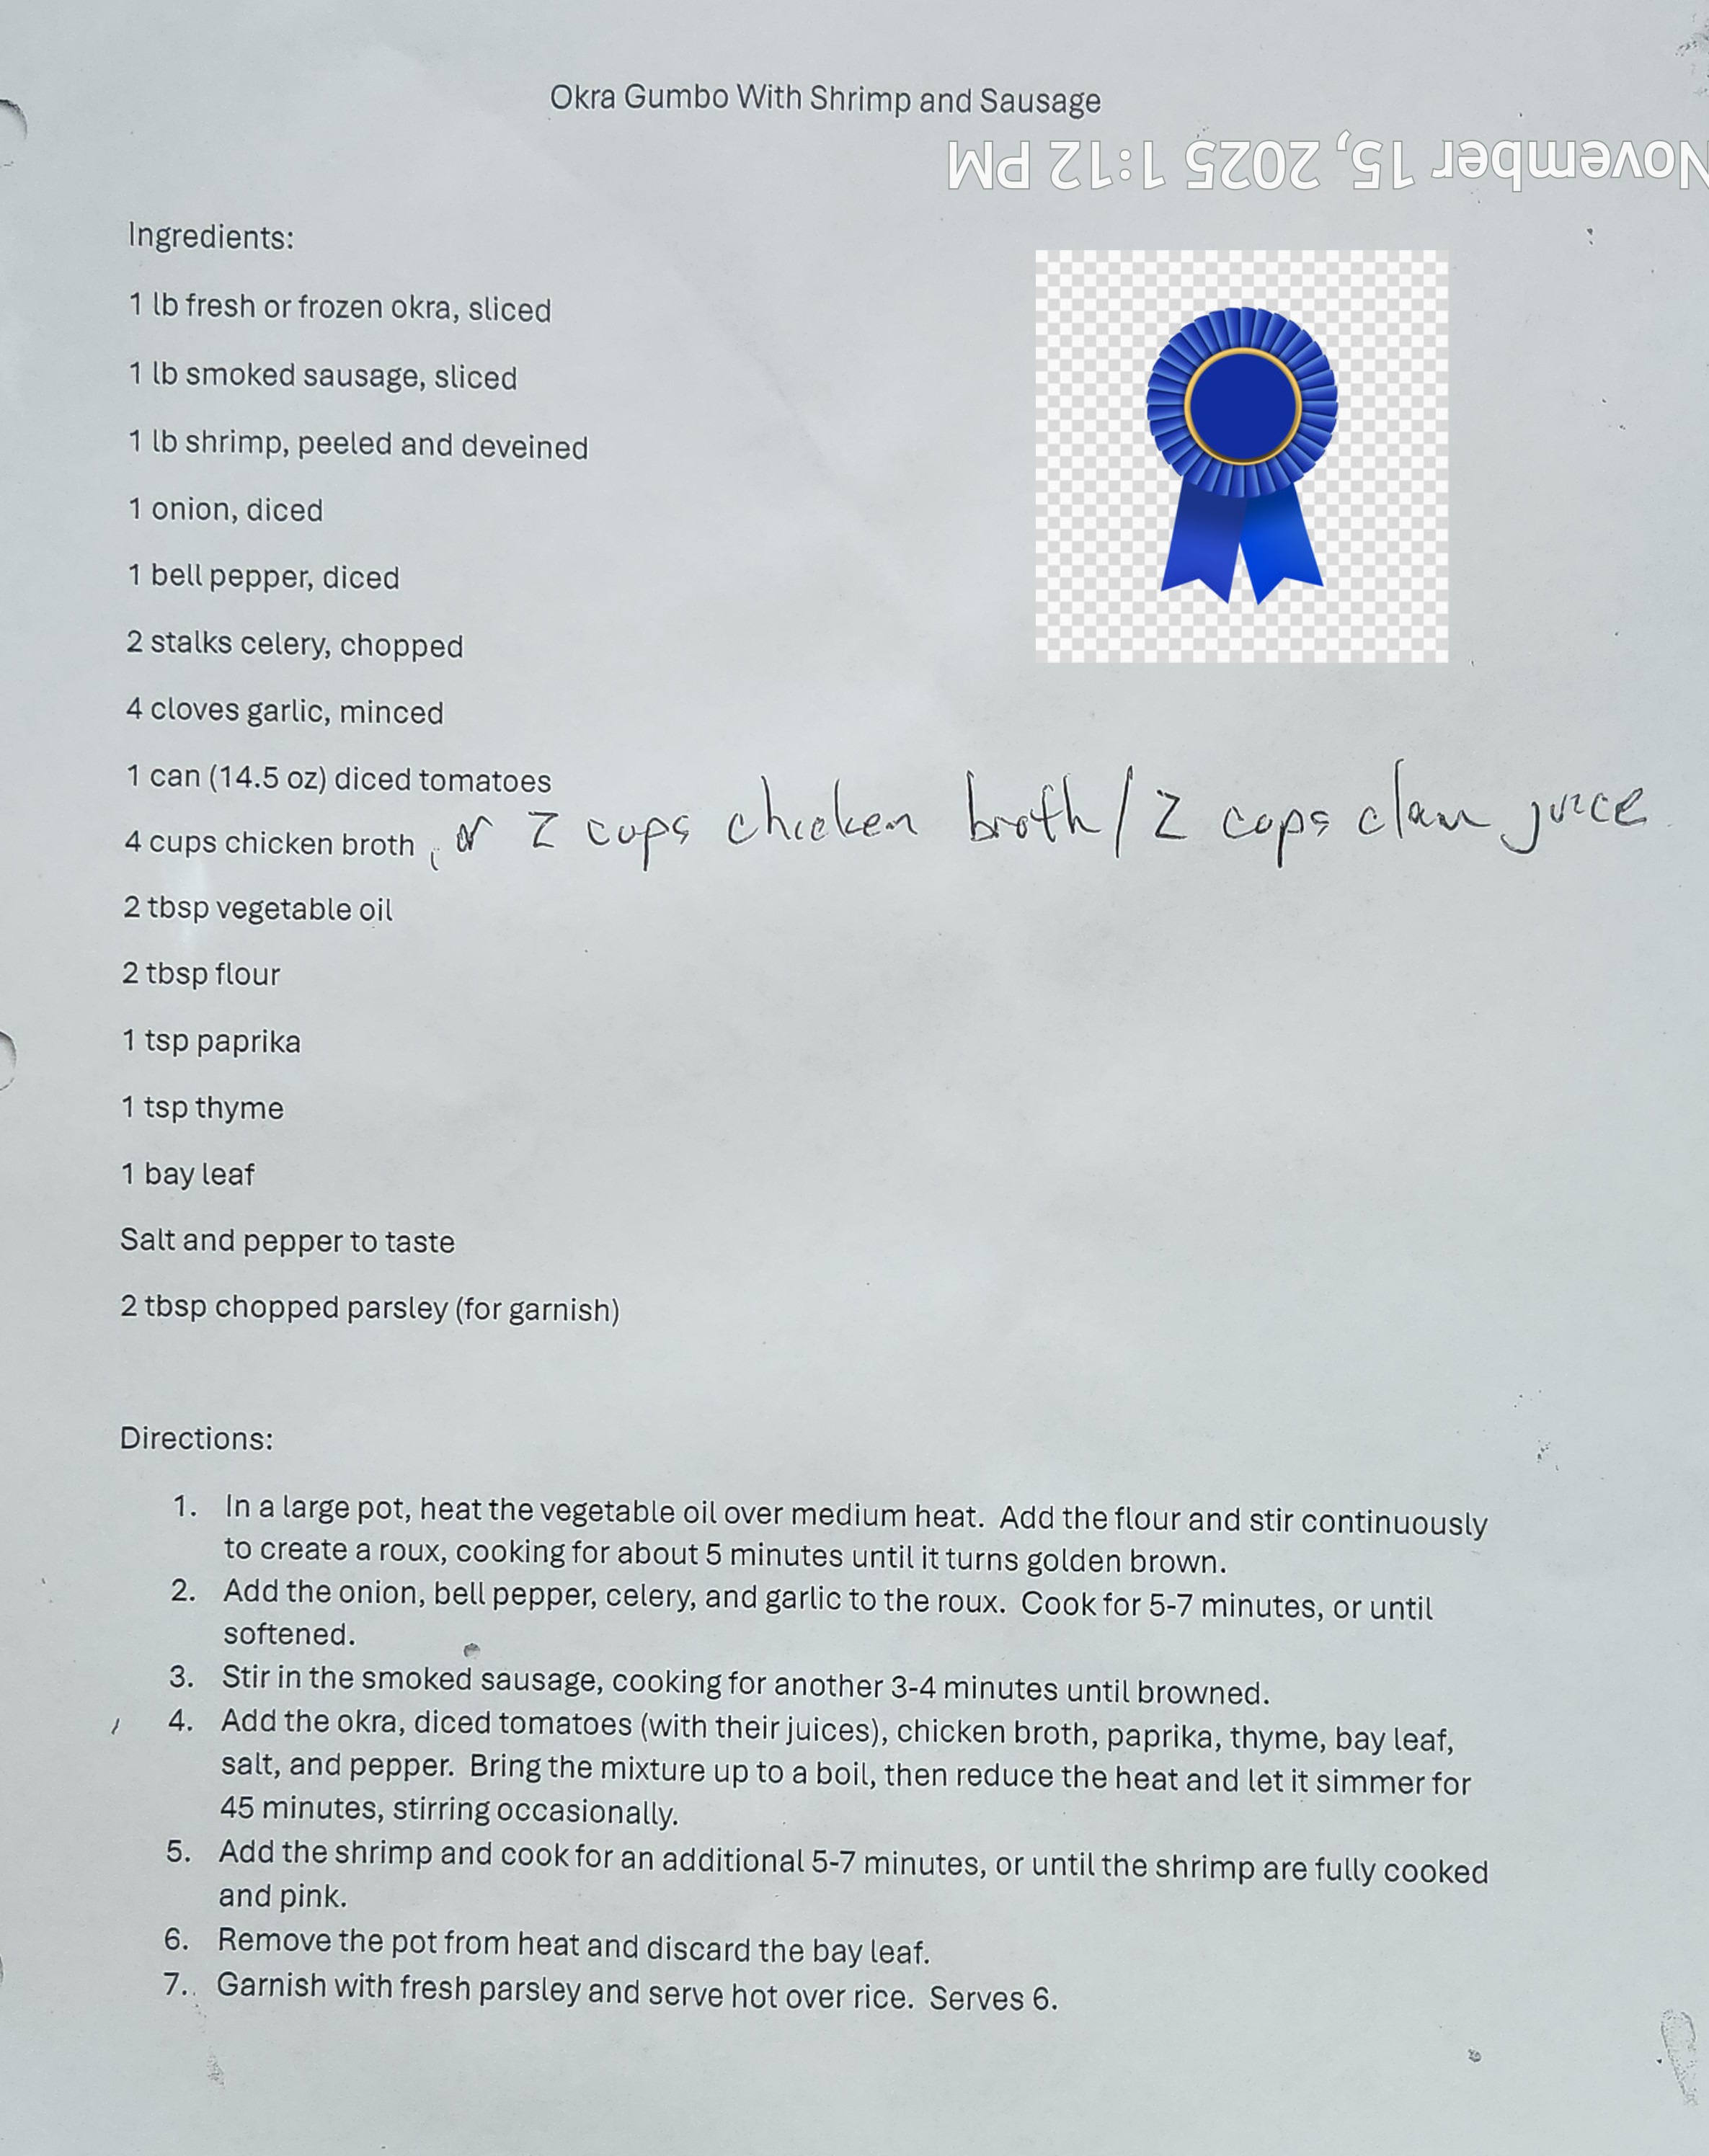 Okra Gumbo With Shrimp and Sausage
November 15, 2025 1:12 PM
Ingredients:
1 lb fresh or frozen okra, sliced
1 lb smoked sausage, sliced
1 lb shrimp, peeled and deveined
1 onion, diced
1 bell pepper, diced
2 stalks celery, chopped
4 cloves garlic, minced
1 can (14.5 oz) diced tomatoes
4 cups chicken broth, or 2 cups chicken broth/2 cups clam juice
2 tbsp vegetable oil
2 tbsp flour
1 tsp paprika
1 tsp thyme
1 bay leaf
Salt and pepper to taste
2 tbsp chopped parsley (for garnish)
Directions:
1. In a large pot, heat the vegetable oil over medium heat. Add the flour and stir continuously
to create a roux, cooking for about 5 minutes until it turns golden brown.
2. Add the onion, bell pepper, celery, and garlic to the roux. Cook for 5-7 minutes, or until
softened.
3. Stir in the smoked sausage, cooking for another 3-4 minutes until browned.
4. Add the okra, diced tomatoes (with their juices), chicken broth, paprika, thyme, bay leaf,
salt, and pepper. Bring the mixture up to a boil, then reduce the heat and let it simmer for
45 minutes, stirring occasionally.
5. Add the shrimp and cook for an additional 5-7 minutes, or until the shrimp are fully cooked
and pink.
6. Remove the pot from heat and discard the bay leaf.
7. Garnish with fresh parsley and serve hot over rice. Serves 6.